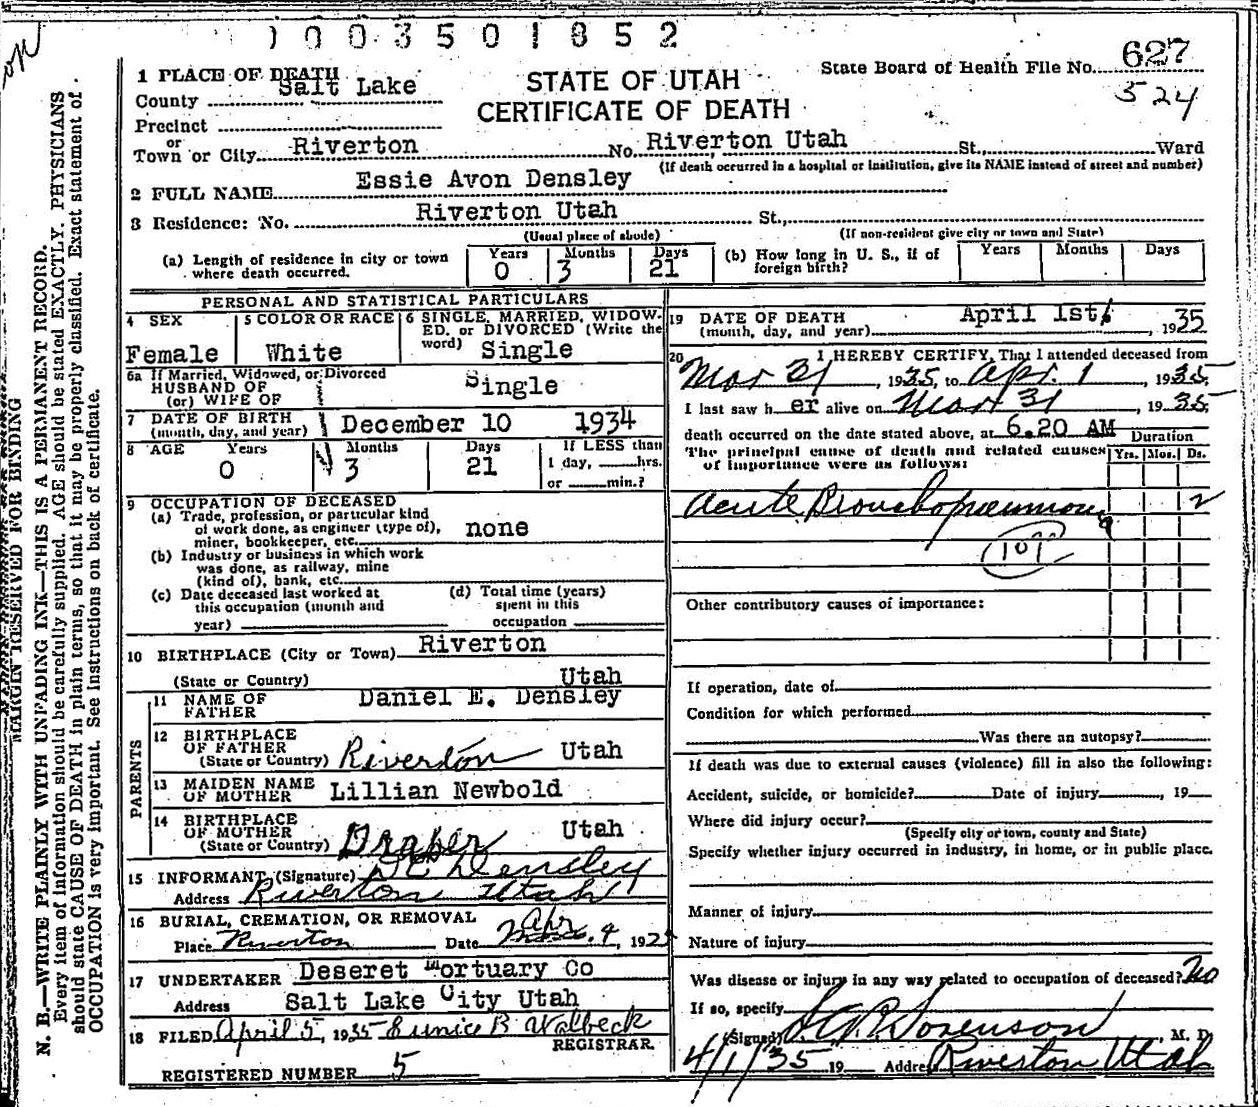 1 0 0 3 5 0 1 8 5 2
1 PLACE OF DEATH STATE OF UTAH State Board of Health File No. 627
County Salt Lake CERTIFICATE OF DEATH 524
Precinct
or
Town or City Riverton No. Riverton Utah St., Ward
(If death occurred in a hospital or institution, give its NAME instead of street and number)
2 FULL NAME Essie Avon Densley
3 Residence: No. Riverton Utah St.,
(Usual place of abode) (If non-resident give city or town and State)
(a) Length of residence in city or town where death occurred. Years 0 Months 3 Days 21 (b) How long in U. S., if of foreign birth? Years Months Days
PERSONAL AND STATISTICAL PARTICULARS
4 SEX Female
5 COLOR OR RACE White
6 SINGLE, MARRIED, WIDOWED, or DIVORCED (Write the word) Single
6a If Married, Widowed, or Divorced
HUSBAND OF
(or) WIFE OF Single
7 DATE OF BIRTH
(month, day, and year) December 10 1934
8 AGE Years 0 Months 3 Days 21 If LESS than
1 day, hrs.
or min.?
9 OCCUPATION OF DECEASED
(a) Trade, profession, or particular kind
of work done, as engineer (type of),
miner, bookkeeper, etc. none
(b) Industry or business in which work
was done, as railway, mine
(kind of), bank, etc.
(c) Date deceased last worked at
this occupation (month and
year)
(d) Total time (years)
spent in this
occupation
10 BIRTHPLACE (City or Town) Riverton
(State or Country) Utah
PARENTS
11 NAME OF
FATHER Daniel E. Densley
12 BIRTHPLACE
OF FATHER
(State or Country) Riverton Utah
13 MAIDEN NAME
OF MOTHER Lillian Newbold
14 BIRTHPLACE
OF MOTHER
(State or Country) Draper Utah
15 INFORMANT (Signature) D E Densley
Address Riverton Utah
16 BURIAL, CREMATION, OR REMOVAL
Place Riverton Date Apr. 4, 1925
17 UNDERTAKER Deseret Mortuary Co
Address Salt Lake City Utah
18 FILED April 5, 1935 Eunice B Walbeck
REGISTRAR.
REGISTERED NUMBER 5
19 DATE OF DEATH
(month, day, and year) April 1st, 1935
20 I HEREBY CERTIFY, That I attended deceased from
Mar 31, 1935, to Apr. 1 1935
I last saw her alive on Mar 31, 1935
death occurred on the date stated above, at 6.20 AM
The principal cause of death and related causes
of importance were as follows:
Duration
Yrs. Mos. Ds.
Acute Bronchopneumonia 2
107
Other contributory causes of importance:
If operation, date of
Condition for which performed
Was there an autopsy?
If death was due to external causes (violence) fill in also the following:
Accident, suicide, or homicide? Date of injury , 19
Where did injury occur?
(Specify city or town, county and State)
Specify whether injury occurred in industry, in home, or in public place.
Manner of injury
Nature of injury
Was disease or injury in any way related to occupation of deceased? No
If so, specify
(Signed) Sorenson, M. D.
4/1/35 19 Address Riverton Utah
MARGIN RESERVED FOR BINDING
N. B.—WRITE PLAINLY WITH UNFADING INK—THIS IS A PERMANENT RECORD.
Every item of information should be carefully supplied. AGE should be stated EXACTLY. PHYSICIANS
should state CAUSE OF DEATH in plain terms, so that it may be properly classified. Exact statement of
OCCUPATION is very important. See instructions on back of certificate.